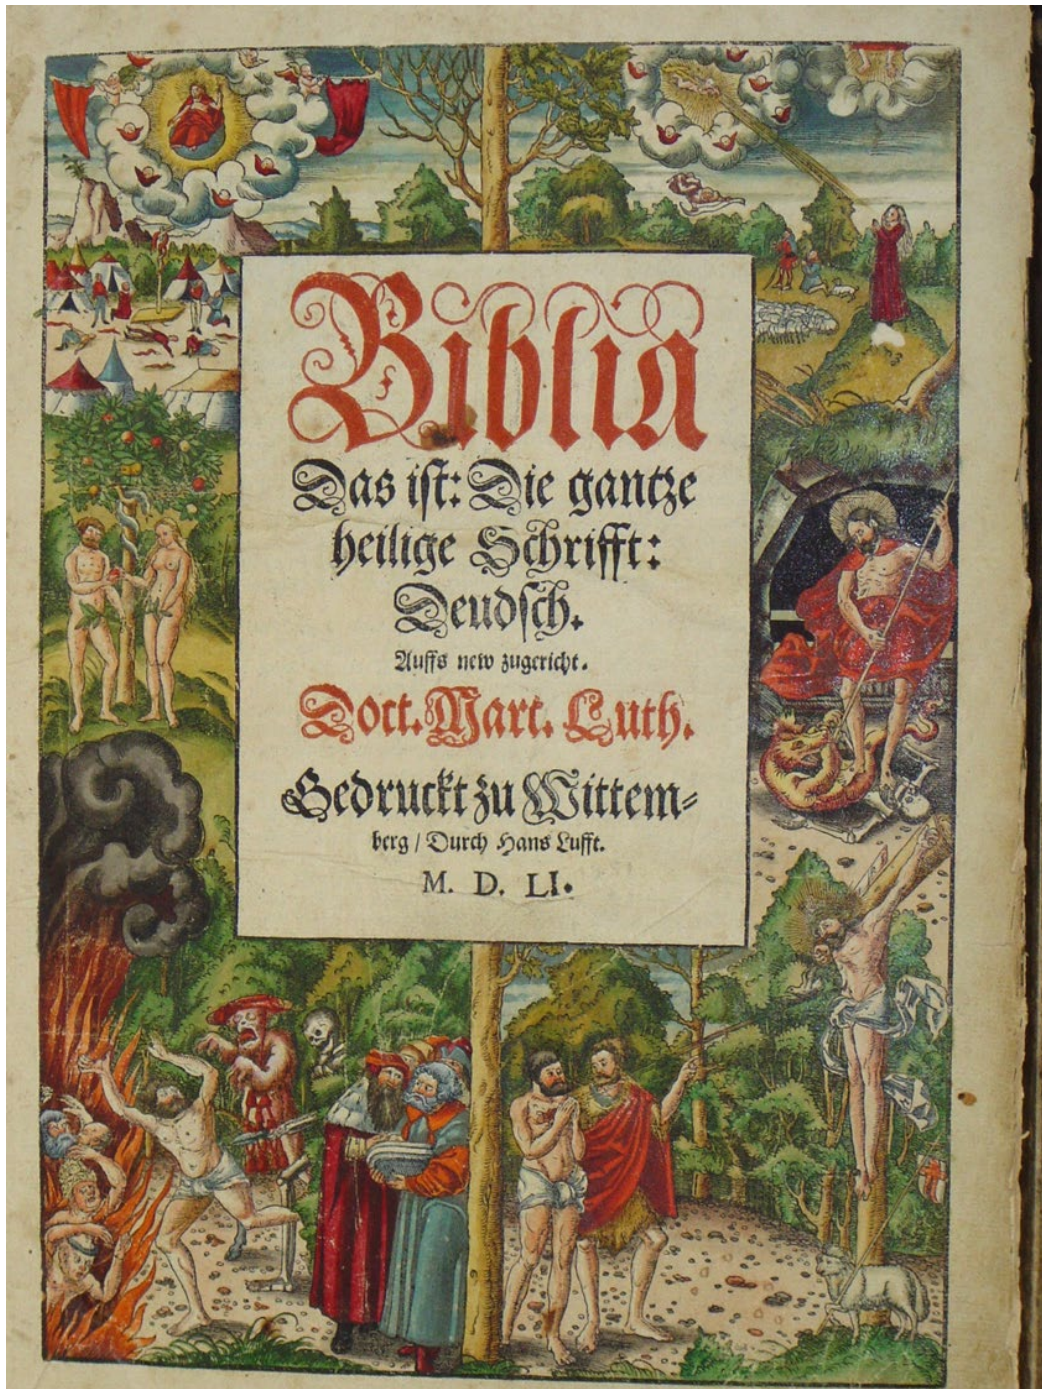 Biblia
Das ist: Die gantze
heilige Schrifft:
Deudsch.
Auffs new zugericht.
Doct. Mart. Luth.
Gedruckt zu Wittem⸗
berg / Durch Hans Lufft.
M. D. LI.